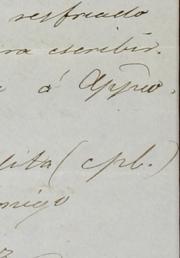 resfriado
ra escribir.
a á Appno.
lita (cpb.)
migo